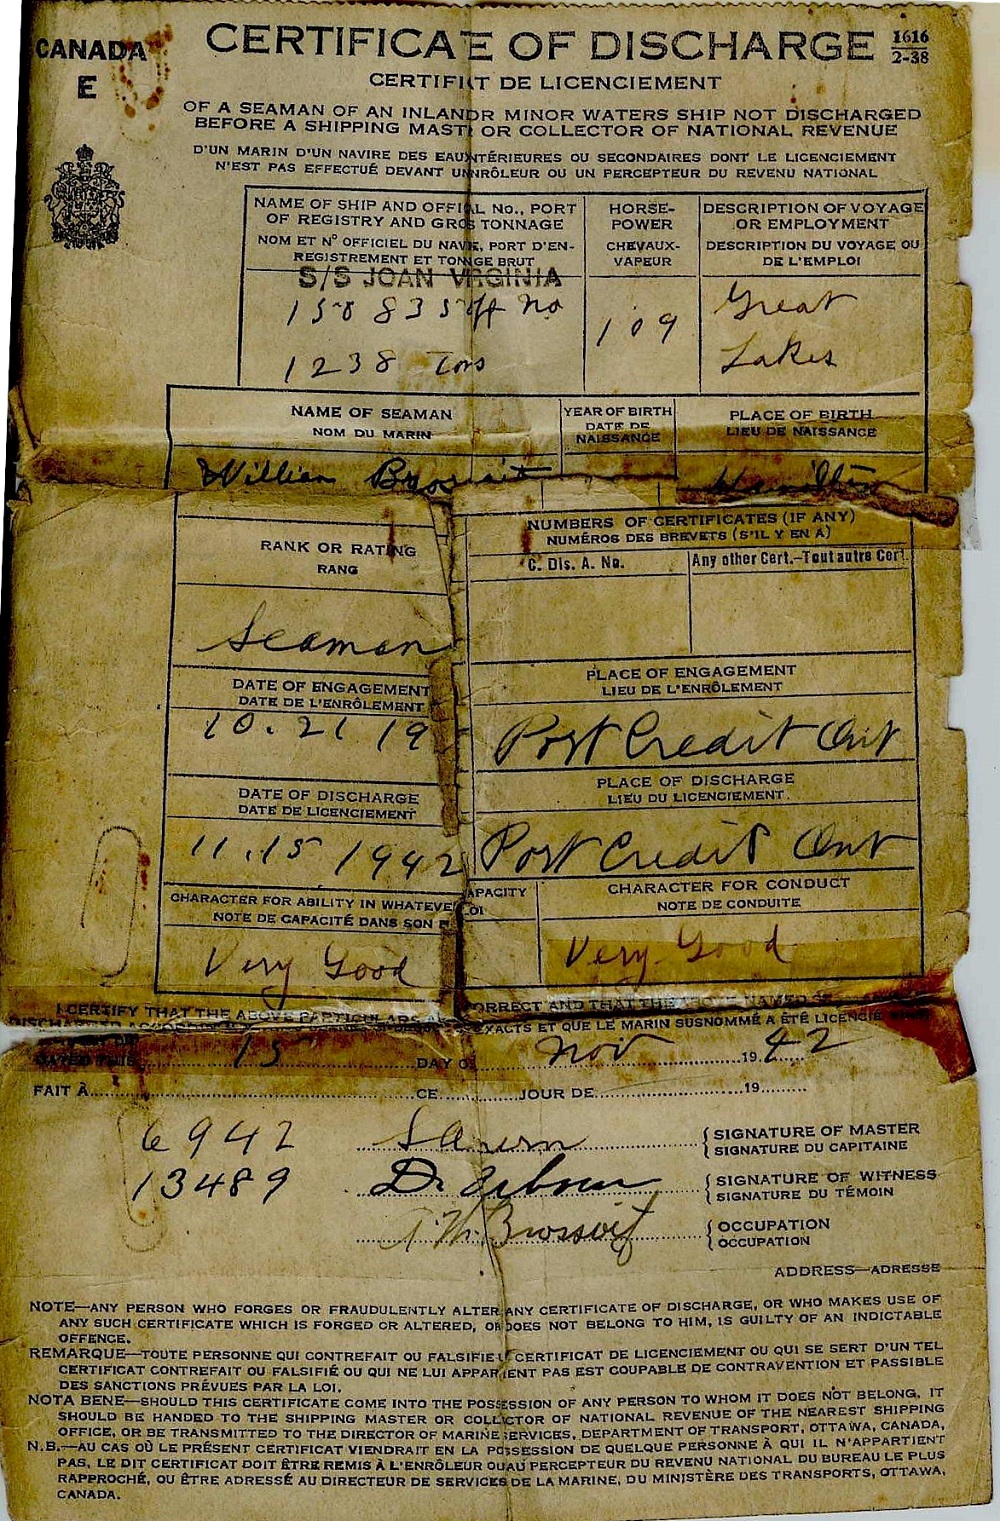 CANADA
E
CERTIFICATE OF DISCHARGE
1616
2-38
CERTIFI T DE LICENCIEMENT
OF A SEAMAN OF AN INLAND R MINOR WATERS SHIP NOT DISCHARGED
BEFORE A SHIPPING MAST OR COLLECTOR OF NATIONAL REVENUE
D'UN MARIN D'UN NAVIRE DES EAUX NTÉRIEURES OU SECONDAIRES DONT LE LICENCIEMENT
N'EST PAS EFFECTUÉ DEVANT UN NRÔLEUR OU UN PERCEPTEUR DU REVENU NATIONAL
NAME OF SHIP AND OFFI L No., PORT
OF REGISTRY AND GROS TONNAGE
NOM ET No OFFICIEL DU NAV E, PORT D'EN-
REGISTREMENT ET TON GE BRUT
HORSE-
POWER
CHEVAUX-
VAPEUR
DESCRIPTION OF VOYAGE
OR EMPLOYMENT
DESCRIPTION DU VOYAGE OU
DE L'EMPLOI
S/S JOAN V RGINIA
158835 off No
1238 Tons
109
Great
Lakes
NAME OF SEAMAN
NOM DU MARIN
YEAR OF BIRTH
DATE DE
NAISSANCE
PLACE OF BIRTH
LIEU DE NAISSANCE
William Brossoit
Hamilton
RANK OR RATING
RANG
Seaman
NUMBERS OF CERTIFICATES (IF ANY)
NUMÉROS DES BREVETS (S'IL Y EN A)
C. Dis. A. No.
Any other Cert.—Tout autre Cert.
DATE OF ENGAGEMENT
DATE DE L'ENRÔLEMENT
10.21 19
PLACE OF ENGAGEMENT
LIEU DE L'ENRÔLEMENT
Port Credit Ont
DATE OF DISCHARGE
DATE DE LICENCIEMENT
11.15 1942
PLACE OF DISCHARGE
LIEU DU LICENCIEMENT.
Port Credit Ont
CHARACTER FOR ABILITY IN WHATEVE APACITY
NOTE DE CAPACITÉ DANS SON E LOI
Very Good
CHARACTER FOR CONDUCT
NOTE DE CONDUITE
Very Good
I CERTIFY THAT THE ABOVE PARTICULARS A ORRECT AND THAT THE ABOVE NAMED
DISCHARGED XACTS ET QUE LE MARIN SUSNOMMÉ A ÉTÉ LICENCIÉ
DATED THIS 15 DAY O Nov 1942
FAIT À CE JOUR DE 19
6942
SIGNATURE OF MASTER
SIGNATURE DU CAPITAINE
13489
SIGNATURE OF WITNESS
SIGNATURE DU TÉMOIN
Brossoit
OCCUPATION
OCCUPATION
ADDRESS—ADRESSE
NOTE—ANY PERSON WHO FORGES OR FRAUDULENTLY ALTER ANY CERTIFICATE OF DISCHARGE, OR WHO MAKES USE OF
ANY SUCH CERTIFICATE WHICH IS FORGED OR ALTERED, OR DOES NOT BELONG TO HIM, IS GUILTY OF AN INDICTABLE
OFFENCE.
REMARQUE—TOUTE PERSONNE QUI CONTREFAIT OU FALSIFIE U CERTIFICAT DE LICENCIEMENT OU QUI SE SERT D'UN TEL
CERTIFICAT CONTREFAIT OU FALSIFIÉ OU QUI NE LUI APPAR IENT PAS EST COUPABLE DE CONTRAVENTION ET PASSIBLE
DES SANCTIONS PRÉVUES PAR LA LOI.
NOTA BENE—SHOULD THIS CERTIFICATE COME INTO THE POSSESSION OF ANY PERSON TO WHOM IT DOES NOT BELONG, IT
SHOULD BE HANDED TO THE SHIPPING MASTER OR COLLECTOR OF NATIONAL REVENUE OF THE NEAREST SHIPPING
OFFICE, OR BE TRANSMITTED TO THE DIRECTOR OF MARINE SERVICES, DEPARTMENT OF TRANSPORT, OTTAWA, CANADA,
N.B.—AU CAS OÙ LE PRÉSENT CERTIFICAT VIENDRAIT EN LA POSSESSION DE QUELQUE PERSONNE À QUI IL N'APPARTIENT
PAS, LE DIT CERTIFICAT DOIT ÊTRE REMIS À L'ENRÔLEUR OU AU PERCEPTEUR DU REVENU NATIONAL DU BUREAU LE PLUS
RAPPROCHÉ, OU ÊTRE ADRESSÉ AU DIRECTEUR DE SERVICES DE LA MARINE, DU MINISTÈRE DES TRANSPORTS, OTTAWA,
CANADA.